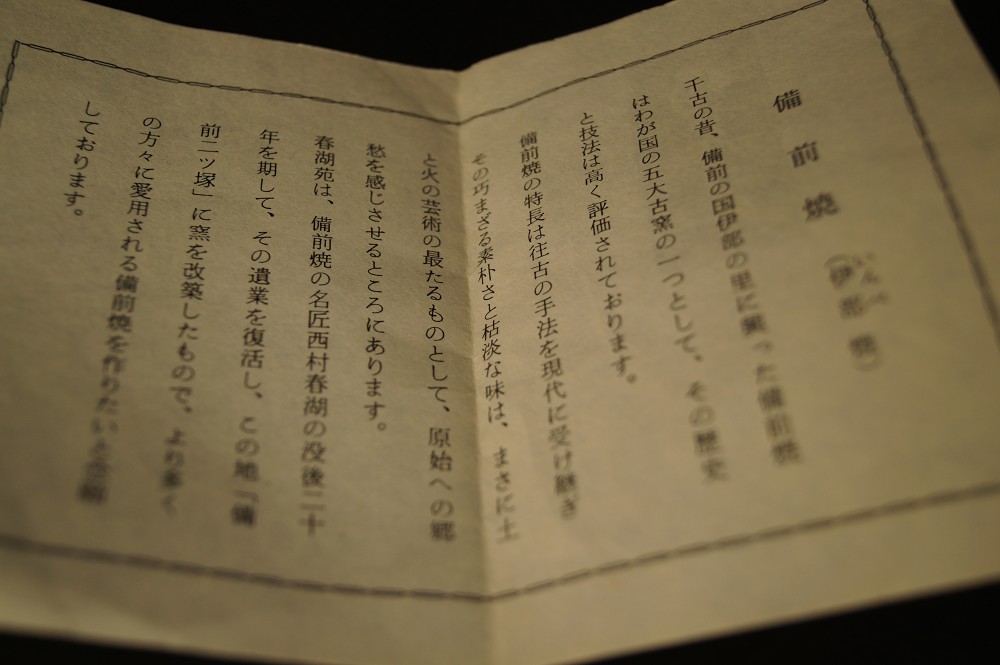 備前焼（伊部焼）
いんべ
千古の昔、備前の国伊部の里に興った備前焼
はわが国の五大古窯の一つとして、その歴史
と技法は高く評価されております。
備前焼の特長は往古の手法を現代に受け継ぎ
その巧まざる素朴さと枯淡な味は、まさに土
と火の芸術の最たるものとして、原始への郷
愁を感じさせるところにあります。
春湖苑は、備前焼の名匠西村春湖の没後二十
年を期して、その遺業を復活し、この地「備
前二ッ塚」に窯を改築したもので、より多く
の方々に愛用される備前焼を作りたいと念願
しております。